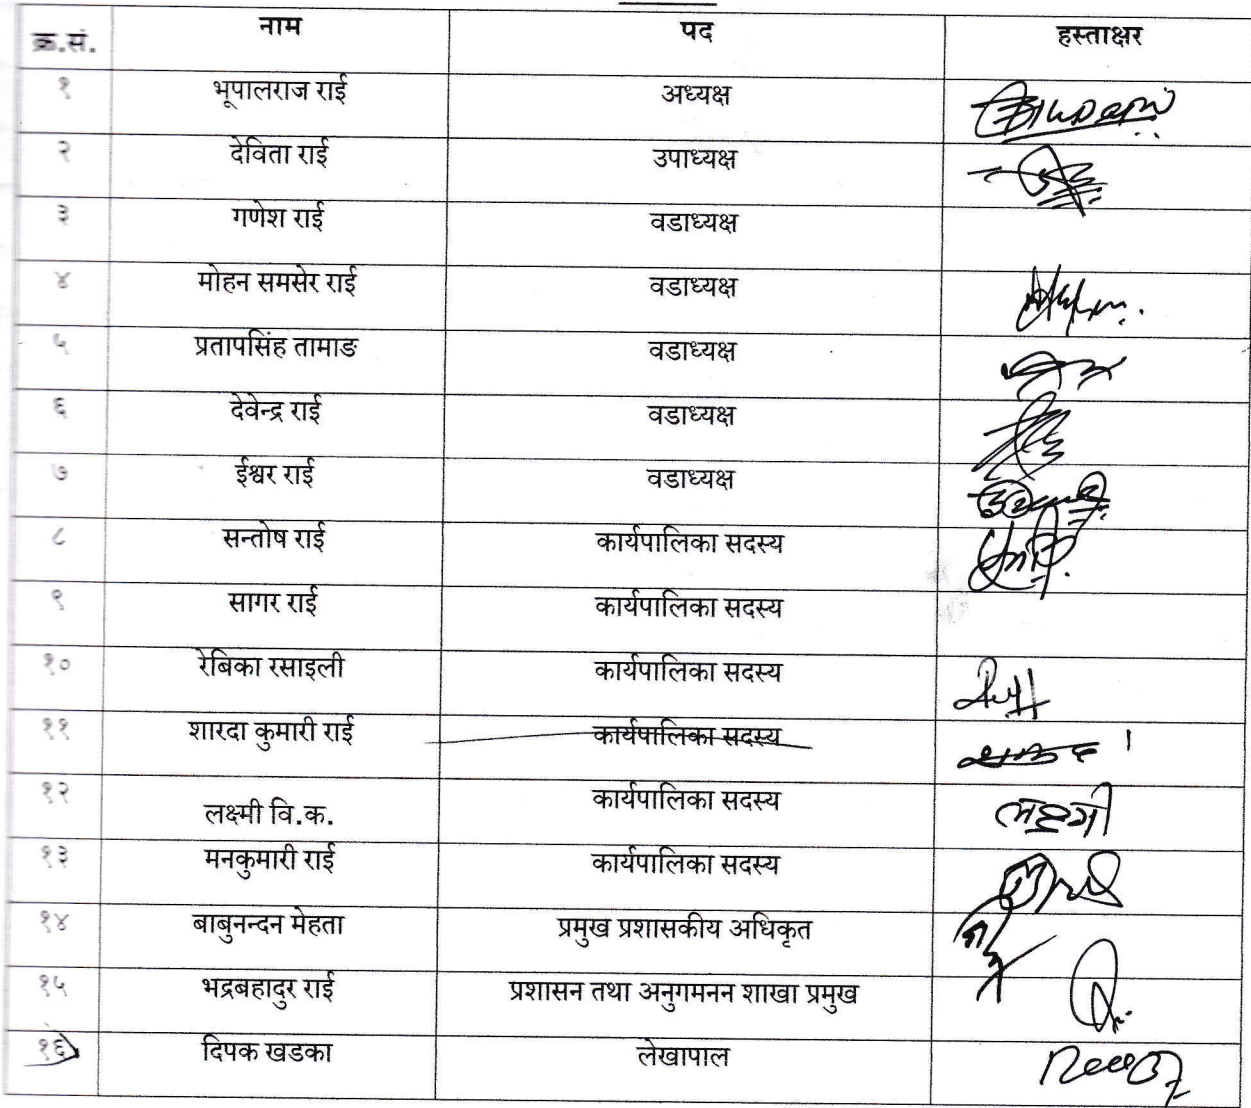 क्र.सं. नाम पद हस्ताक्षर
१ भूपालराज राई अध्यक्ष
२ देविता राई उपाध्यक्ष
३ गणेश राई वडाध्यक्ष
४ मोहन समसेर राई वडाध्यक्ष
५ प्रतापसिंह तामाङ वडाध्यक्ष
६ देवेन्द्र राई वडाध्यक्ष
७ ईश्वर राई वडाध्यक्ष
८ सन्तोष राई कार्यपालिका सदस्य
९ सागर राई कार्यपालिका सदस्य
१० रेबिका रसाइली कार्यपालिका सदस्य
११ शारदा कुमारी राई कार्यपालिका सदस्य
१२ लक्ष्मी वि.क. कार्यपालिका सदस्य
१३ मनकुमारी राई कार्यपालिका सदस्य
१४ बाबुनन्दन मेहता प्रमुख प्रशासकीय अधिकृत
१५ भद्रबहादुर राई प्रशासन तथा अनुगमनन शाखा प्रमुख
१६ दिपक खडका लेखापाल